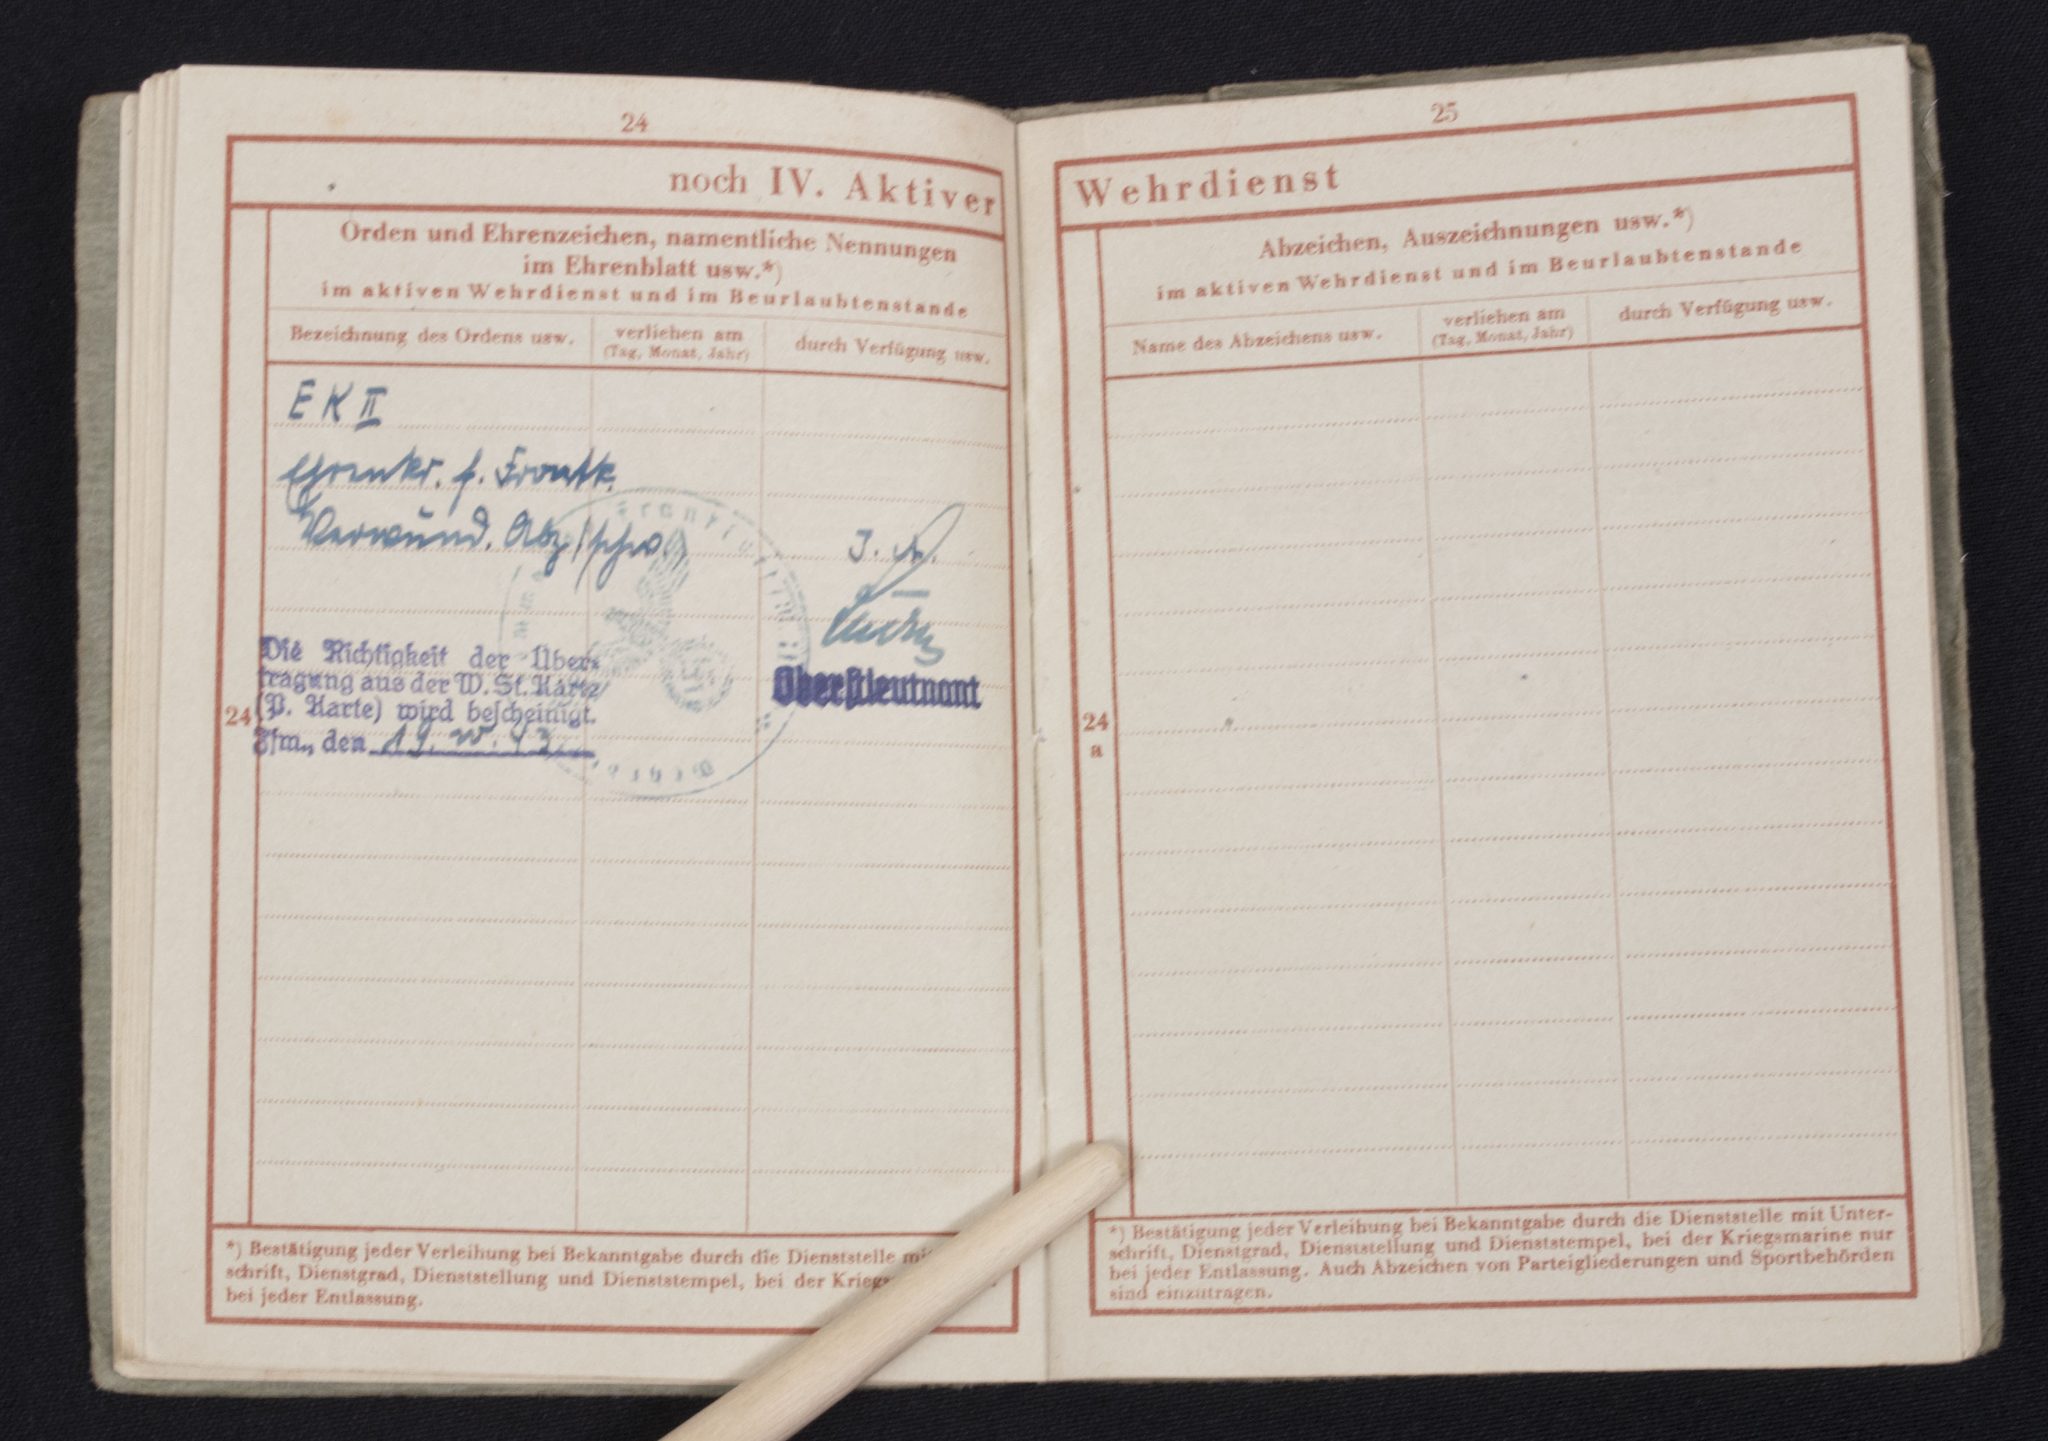 24
noch IV. Aktiver
Orden und Ehrenzeichen, namentliche Nennungen
im Ehrenblatt usw.*)
im aktiven Wehrdienst und im Beurlaubtenstande
Bezeichnung des Ordens usw.
verliehen am
(Tag, Monat, Jahr)
durch Verfügung usw.
E K II
Ehrenkr. f. Frontk.
Verwund. Abz. schw.
J. A.
Oberstleutnant
Die Richtigkeit der Über-
tragung aus der W. St. Karte
(P. Karte) wird bescheinigt.
24
Ffm., den 19. 43
*) Bestätigung jeder Verleihung bei Bekanntgabe durch die Dienststelle
schrift, Dienstgrad, Dienststellung und Dienststempel, bei der
bei jeder Entlassung.
25
Wehrdienst
Abzeichen, Auszeichnungen usw.*)
im aktiven Wehrdienst und im Beurlaubtenstande
Name des Abzeichens usw.
verliehen am
(Tag, Monat, Jahr)
durch Verfügung usw.
24
a
*) Bestätigung jeder Verleihung bei Bekanntgabe durch die Dienststelle mit Unter-
schrift, Dienstgrad, Dienststellung und Dienststempel, bei der Kriegsmarine nur
bei jeder Entlassung. Auch Abzeichen von Parteigliederungen und Sportbehörden
sind einzutragen.